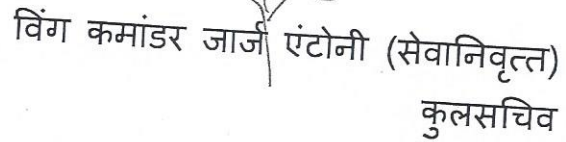 विंग कमांडर जार्ज एंटोनी (सेवानिवृत्त)
कुलसचिव